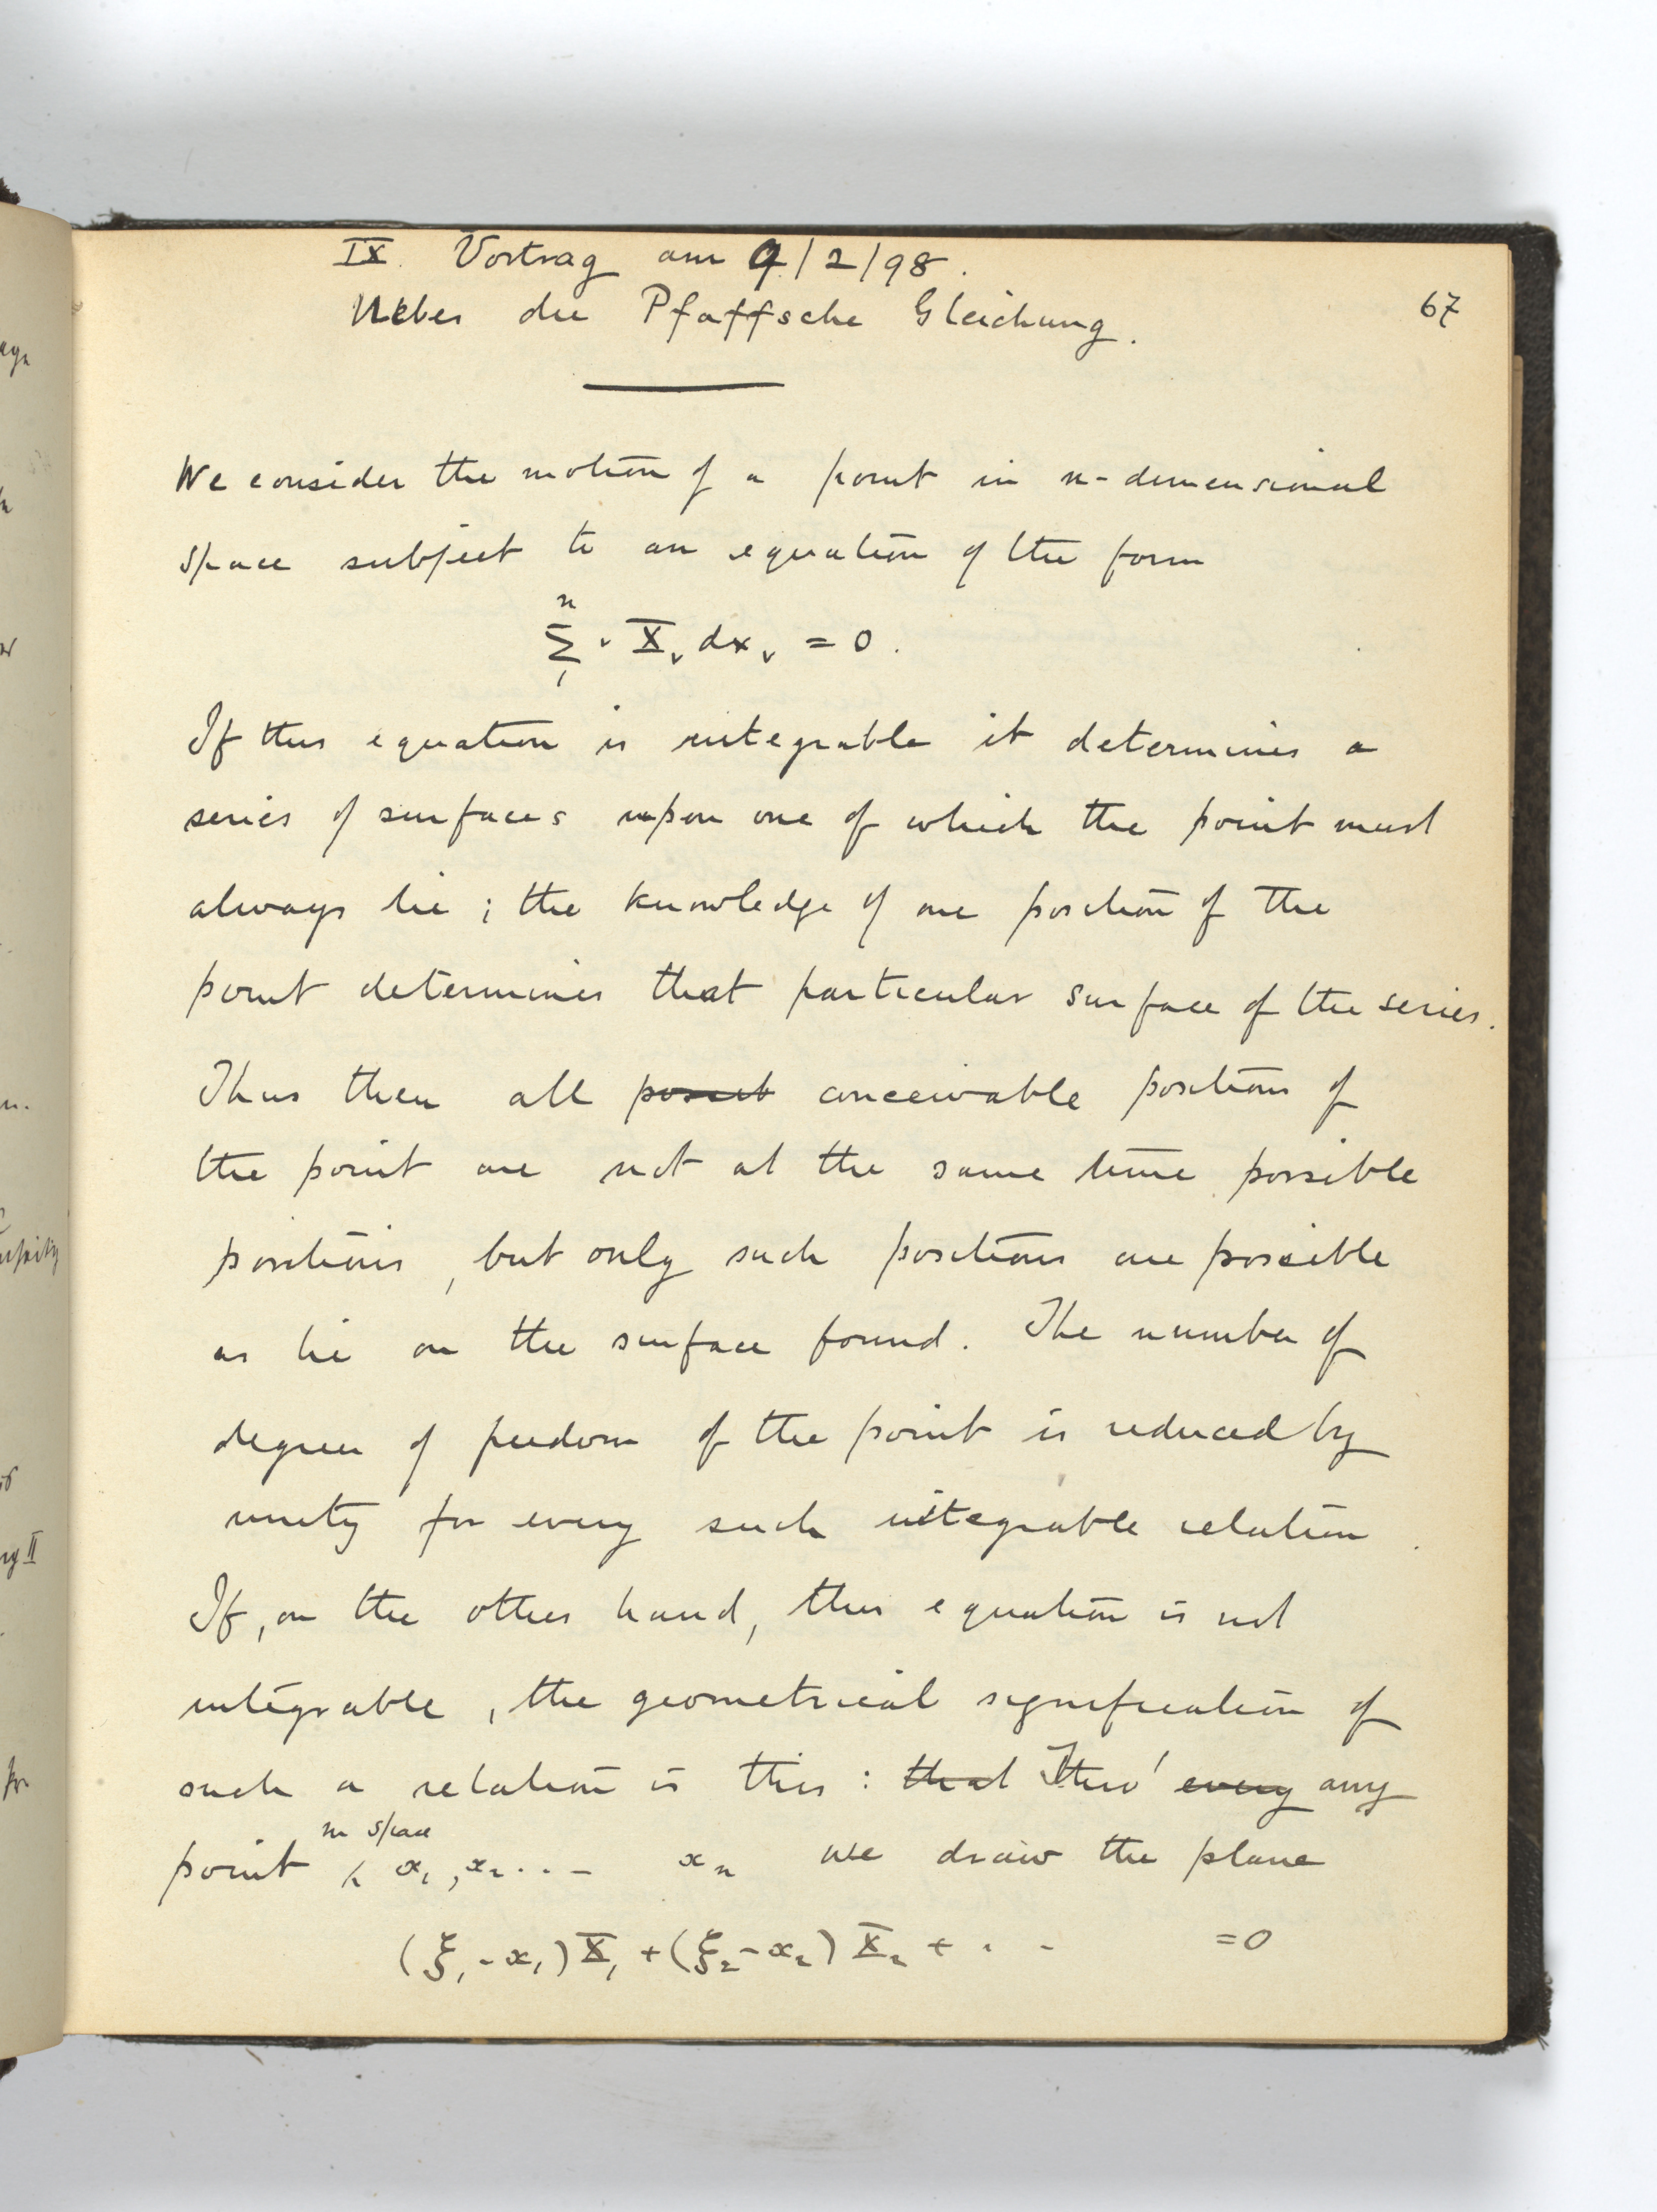 IX. Vortrag am 9/2/98.
67
Ueber die Pfaffsche Gleichung.
We consider the motion of a point in n-dimensional
space subject to an equation of the form
n
Σ ν X_ν dx_ν = 0.
1
If this equation is integrable it determines a
series of surfaces upon one of which the point must
always lie; the knowledge of one position of the
point determines that particular surface of the series.
Thus then all posit conceivable positions of
the point are not at the same time possible
positions, but only such positions are possible
as lie on the surface found. The number of
degrees of freedom of the point is reduced by
unity for every such integrable relation.
If, on the other hand, this equation is not
integrable, the geometrical signification of
such a relation is this: that Thro' every any
in space
point x₁, x₂ . . . xₙ we draw the plane
(ξ₁-x₁)X₁ + (ξ₂-x₂)X₂ + . . =0
ng II
for